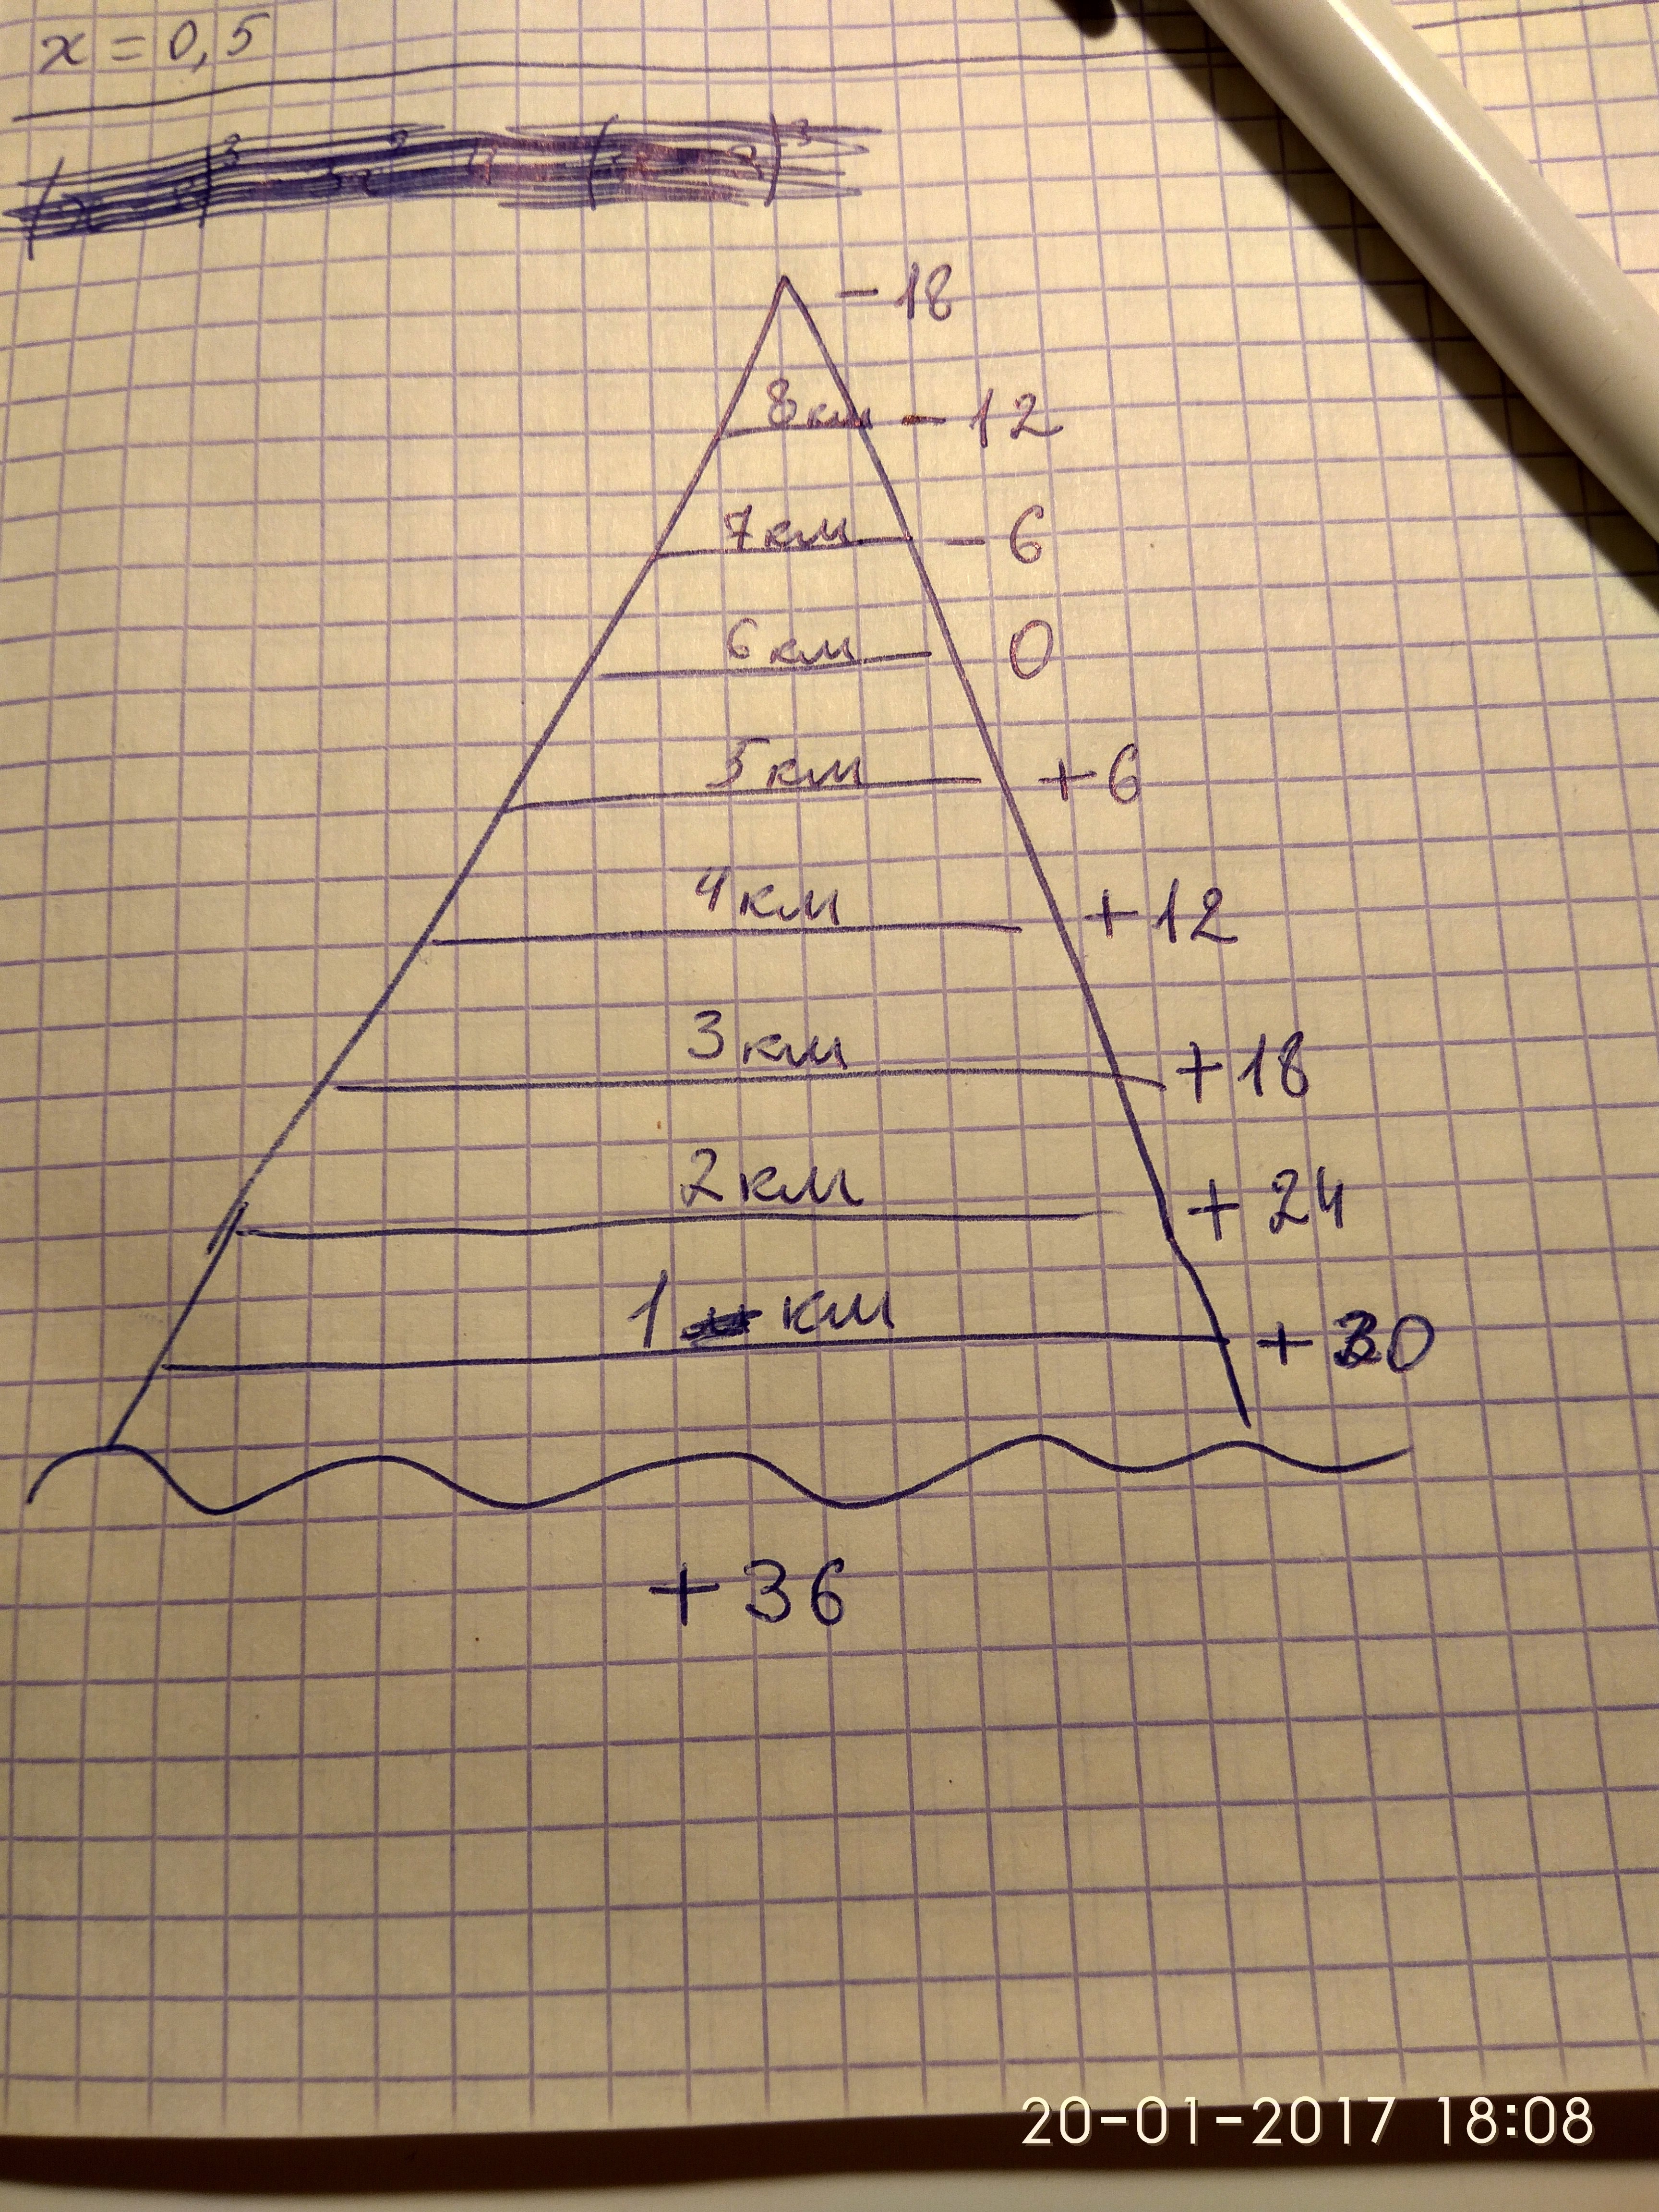 x = 0,5
- 18
8км - 12
7км - 6
6км 0
5км + 6
4км + 12
3км + 18
2км + 24
1 км + 30
+ 36
20-01-2017 18:08